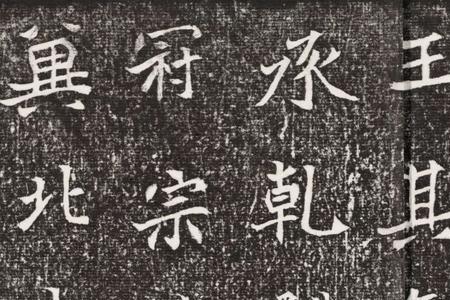 王其
承乾
冠宗
冀北